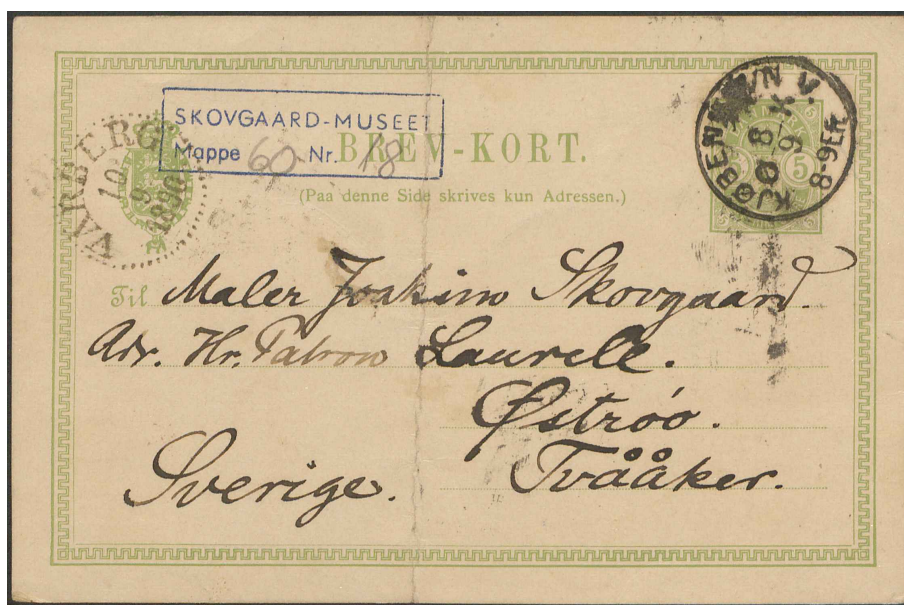 SKOVGAARD-MUSEET
Mappe 60 Nr. 18
BREV-KORT.
(Paa denne Side skrives kun Adressen.)
KJØBENHAVN V.
8-9EFT
5
VARBERG
10
9
1890
Til Maler Joakim Skovgaard.
Adr. Hr. Patron Laurell.
Øströo.
Tvååker.
Sverige.